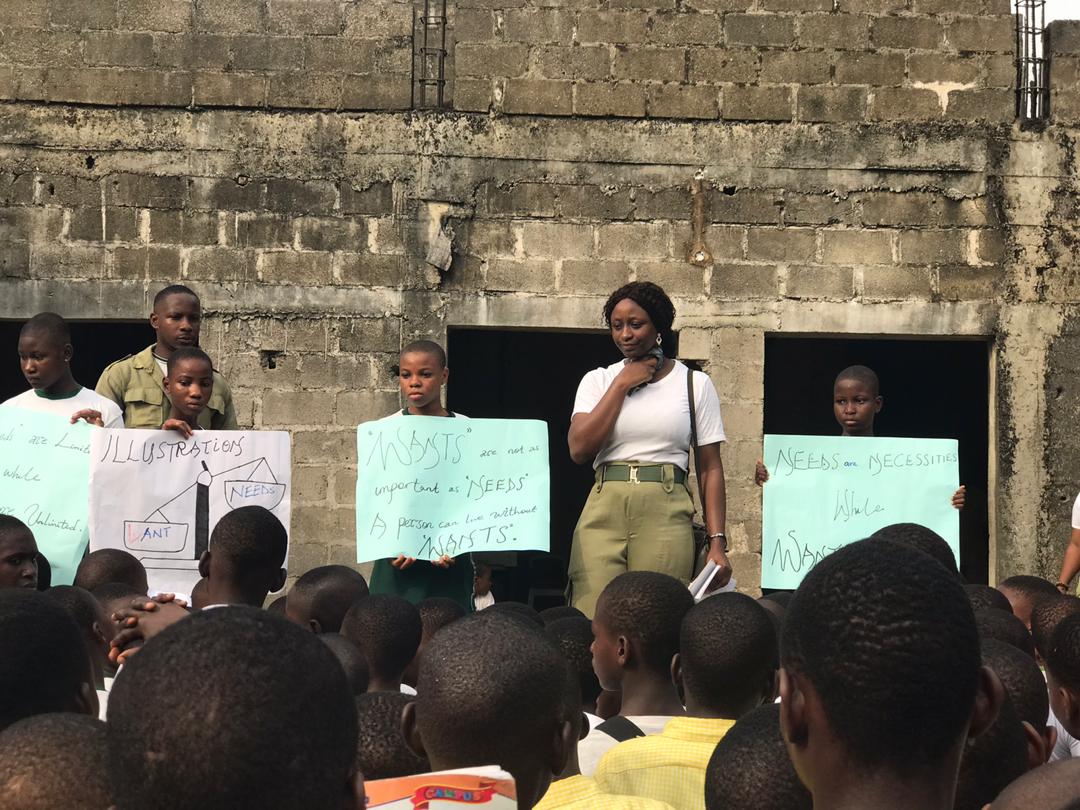 are Limite
while
Unlimited.
ILLUSTRATION
NEEDS
WANT
"WANTS" are not as
important as "NEEDS"
A person can live without
"WANTS".
NEEDS are NECESSITIES
While
WANT
CAMPUS